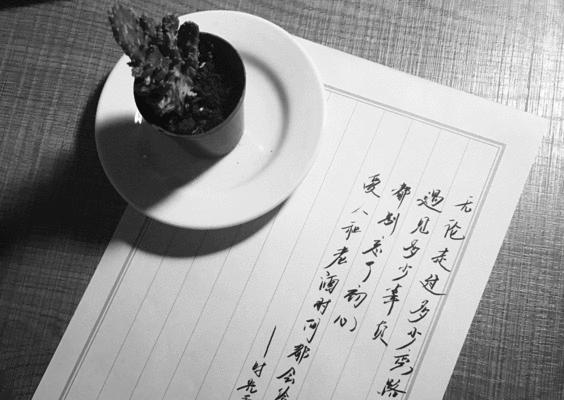 无论走过多少弯路
遇见多少辜负
都别忘了初心
爱人和老酒时间都会给
——时光